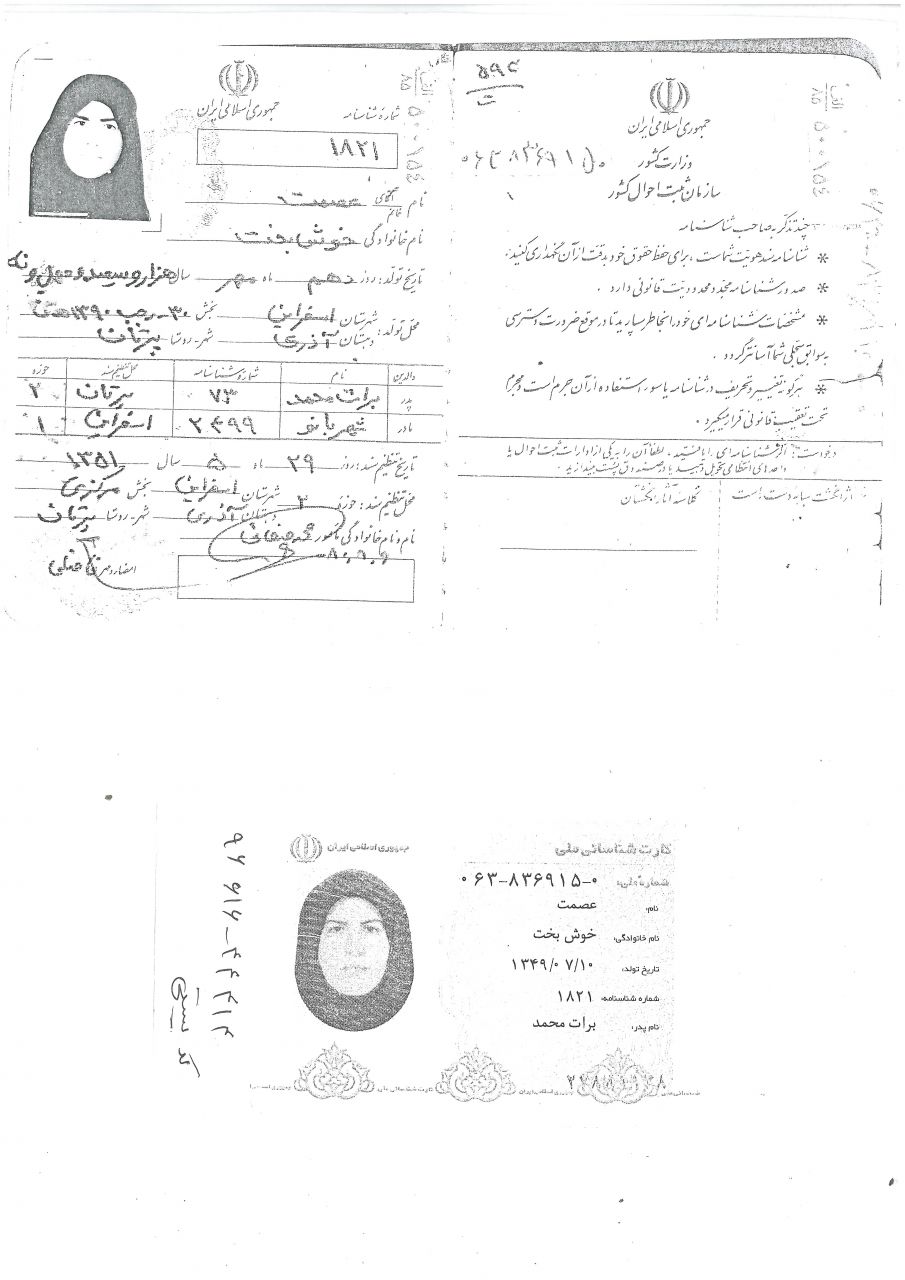 ۵۹۴
ت
جمهوری اسلامی ایران
وزارت کشور
سازمان ثبت احوال کشور
۱
چند تذکر به صاحب شناسنامه
* شناسنامه سند هویت شماست ، برای حفظ حقوق خود بدقت از آن نگهداری کنید.
* صدور شناسنامه مجدد محدودیت قانونی دارد .
* مشخصات شناسنامه ای خود را بخاطر بسپارید تا در موقع ضرورت دسترسی
به سوابق سجلی شما آسانتر گردد .
* هرگونه تغییر و تحریف در شناسنامه یا سوء استفاده از آن جرم است و مجرم
تحت تعقیب قانونی قرار میگیرد .
درخواست: اگر شناسنامه ای را یافتید ، لطفاً آن را به یکی از ادارات ثبت احوال یا
واحدهای انتظامی تحویل دهید یا در صندوق پست بیندازید .
اثر انگشت سبابه دست
کلاسه آثار انگشتان
جمهوری اسلامی ایران
شماره شناسنامه
۱۸۲۱
نام آقای خانم عصمت
نام خانوادگی خوش بخت
تاریخ تولد : روز دهم ماه مهر سال هزار و سیصد و چهل و نه
۳۰ رجب ۱۳۹۰
محل تولد : شهرستان اسفراین بخش
دهستان آذری شهر - روستا پرتان
والدین نام شماره شناسنامه محل تنظیم سند حوزه
پدر برات محمد ۷۳ پرتان ۲
مادر شهربانو ۲۴۹۹ اسفراین ۱
تاریخ تنظیم سند : روز ۲۹ ماه ۵ سال ۱۳۵۱
محل تنظیم سند : حوزه ۲ شهرستان اسفراین بخش مرکزی
دهستان آذری شهر - روستا پرتان
نام و نام خانوادگی مامور
امضاء و مهر
جمهوری اسلامی ایران
کارت شناسائی ملی
۰۶۳-۸۳۶۹۱۵-۰
نام: عصمت
نام خانوادگی: خوش بخت
تاریخ تولد: ۱۳۴۹/۰۷/۱۰
شماره شناسنامه: ۱۸۲۱
نام پدر: برات محمد